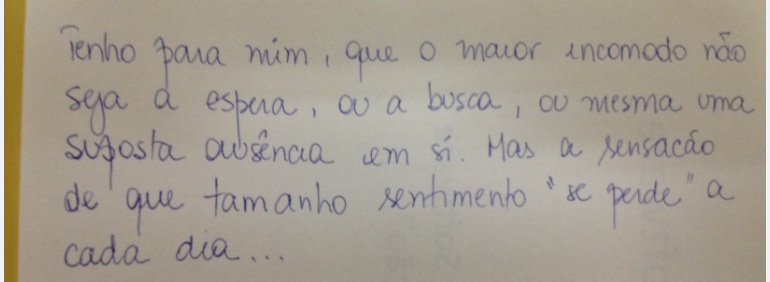 Tenho para mim, que o maior incomodo não
seja a espera, ou a busca, ou mesma uma
suposta ausência em si. Mas a sensacão
de que tamanho sentimento "se perde" a
cada dia...